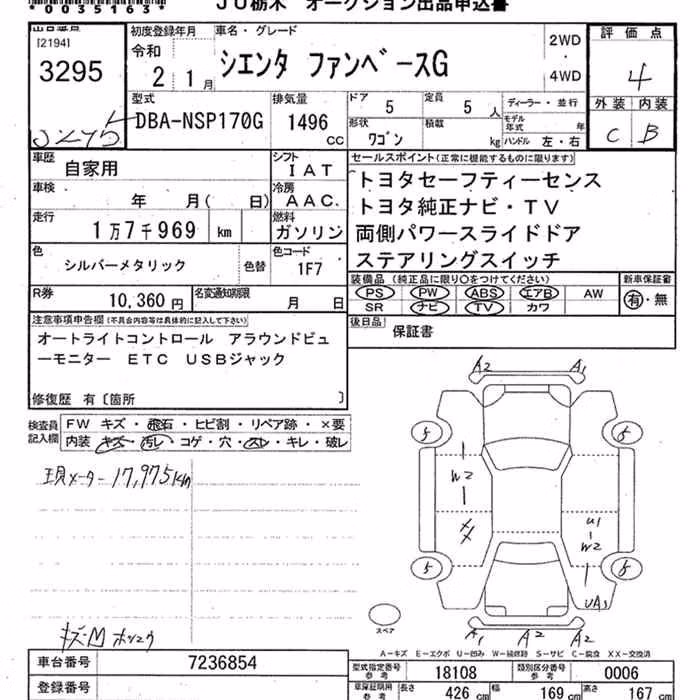 *0035163*
JU栃木 オークション出品申込書
出品番号
[2194]
3295
初度登録年月
令和
2 1月
車名・グレード
シエンタ ファンベースG
2WD
4WD
評価点
4
外装 内装
C B
型式
DBA-NSP170G
排気量
1496
CC
ドア
5
定員
5 人
形状
ワゴン
積載
kg
ディーラー・並行
モデル年式 年
ハンドル 左・右
車歴
自家用
シフト
IAT
車検
年 月( 日)
冷房
AAC.
走行
1万7千969 km
燃料
ガソリン
色
シルバーメタリック
色替
色コード
1F7
R券
10,360円
名変通知期限
月 日
セールスポイント(正常に機能するものに限ります)
トヨタセーフティーセンス
トヨタ純正ナビ・TV
両側パワースライドドア
ステアリングスイッチ
装備品 (純正品に限り○をつけてください)
PS PW ABS エアB AW
SR ナビ TV カワ
新車保証書
有・無
後日品
保証書
注意事項申告欄(不具合内容等は具体的に記入して下さい)
オートライトコントロール アラウンドビュ
ーモニター ETC USBジャック
修復歴 有〔箇所 〕
検査員
記入欄
FW キズ・飛石・ヒビ割・リペア跡・×要
内装 キズ・汚レ・コゲ・穴・スレ・キレ・破レ
現メーター 17,975km
A2 A1
5 5
W2
XX
U1
W2
5 5
UA1
A1 A2 A2
スペア
A-キズ E-エクボ U-凹み W-補修跡 S-サビ C-腐食 XX-交換済
車台番号
7236854
登録番号
型式指定番号
参考
18108
類別区分番号
参考
0006
車庫証明用
参考
長さ
426 cm
幅
169 cm
高さ
167 cm